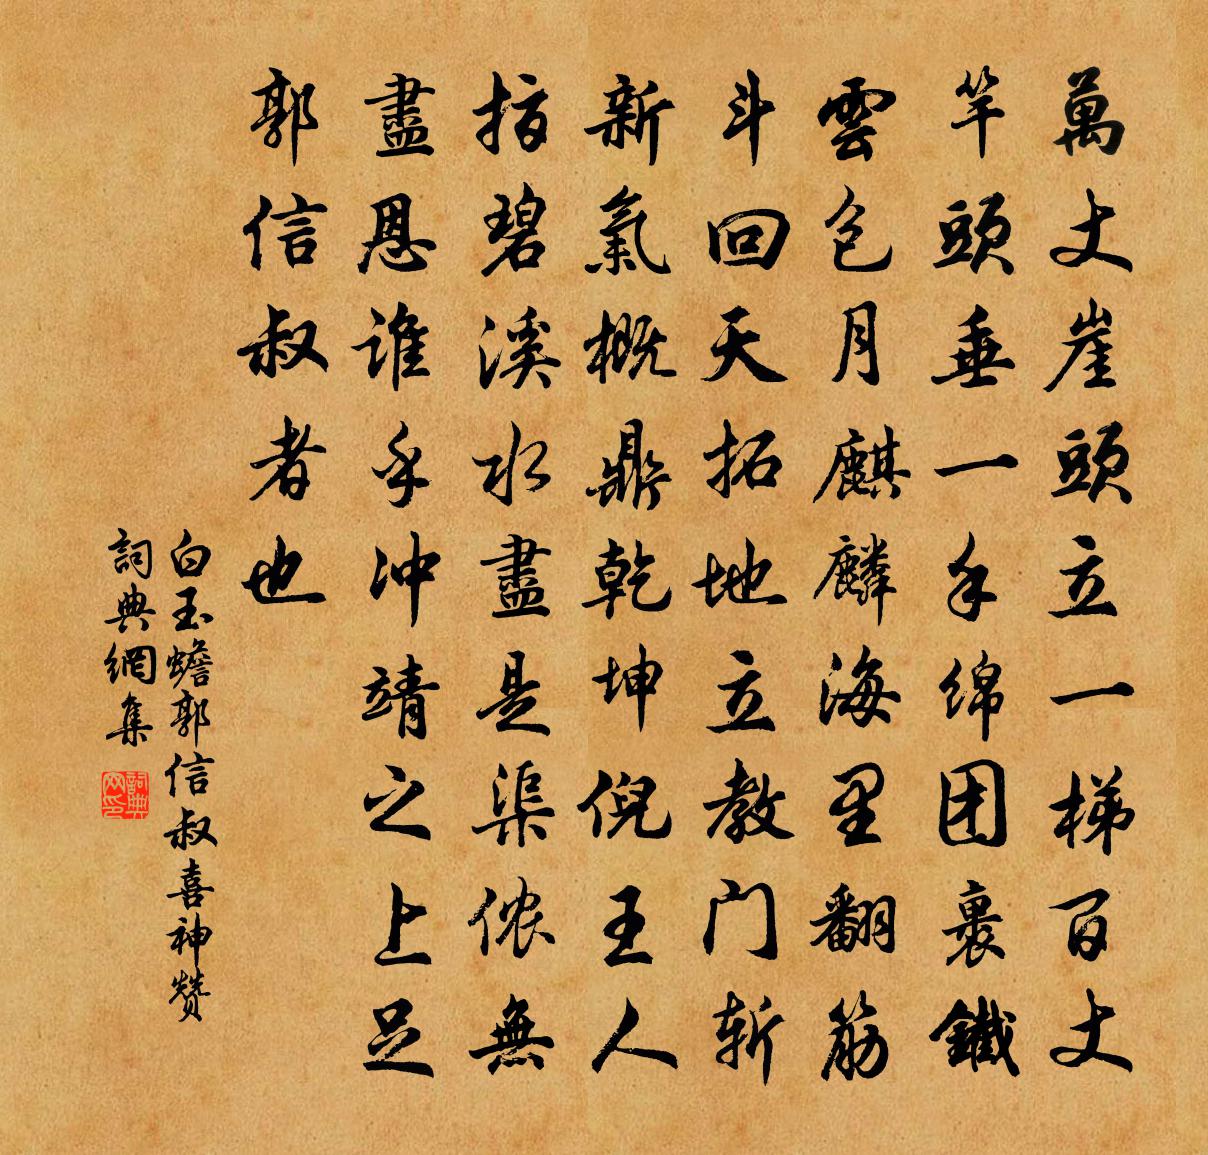 萬丈崖頭立一梯百丈
竿頭垂一手绵团裹鐵
雲包月麒麟海里翻筋
斗回天拓地立教门斬
新氣概鼎乾坤倪王人
指碧溪水盡是渠侬無
盡恩誰乎冲靖之上足
郭信叔者也
白玉蟾郭信叔喜神贊
詞典網集
詞典网印